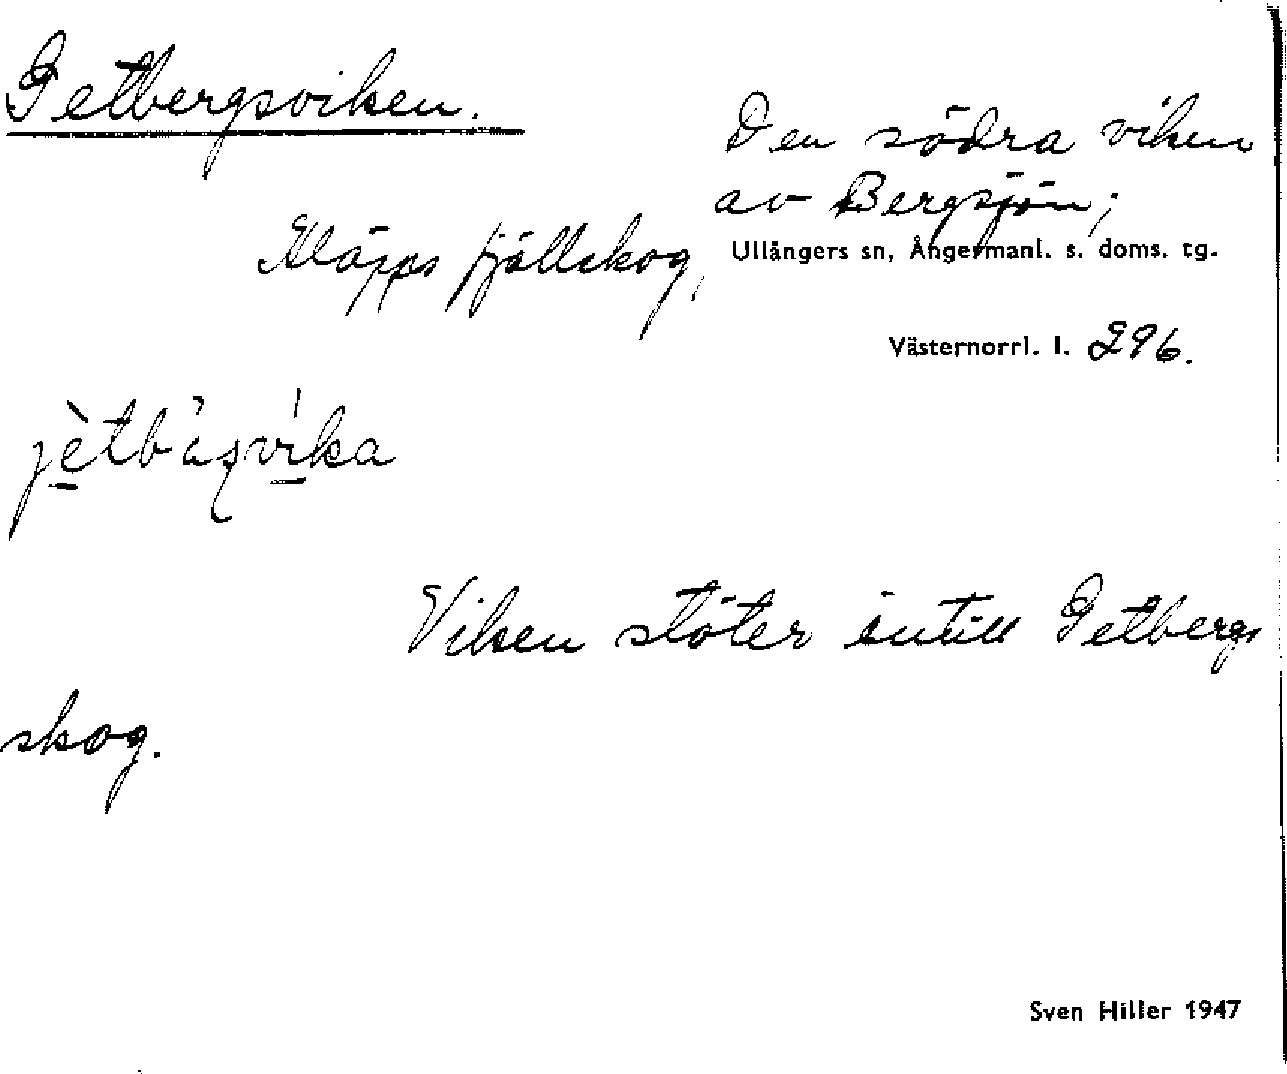 Getbergsviken.
Den södra viken
av Bergsjön;
Kläpps fjällskog,
Ullångers sn, Ångermanl. s. doms. tg.
Västernorrl. l. 296.
Viken stöter intill Getbergs
skog.
Sven Hiller 1947